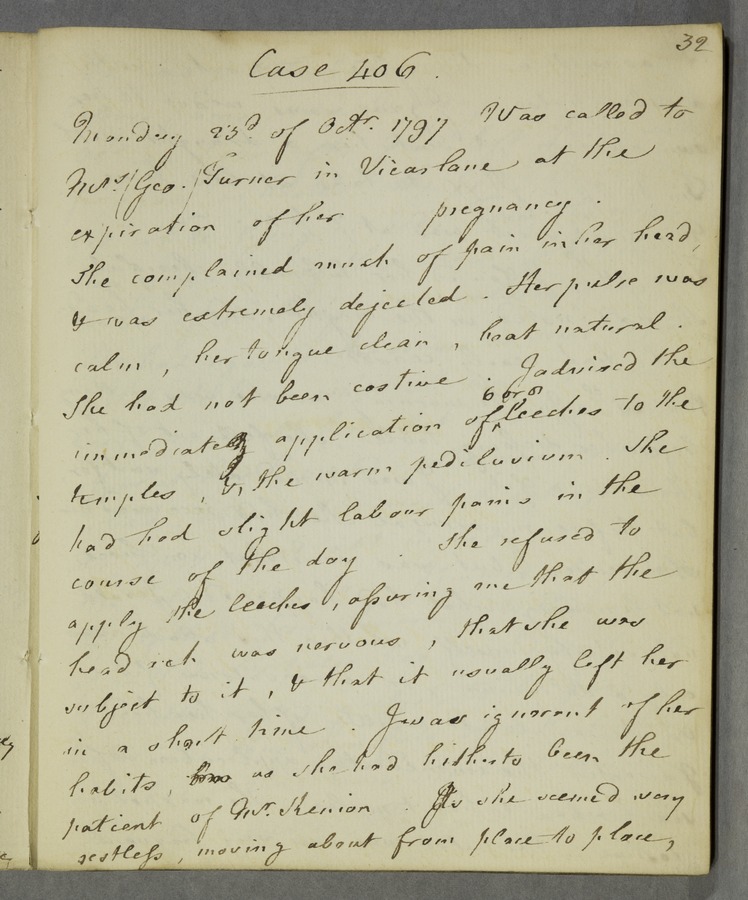 32
Case 406.
Monday 23d of Octr. 1797 Was called to
Mrs (Geo.) Turner in Vicarslane at the
expiration of her pregnancy.
She complained much of pain in her head,
& was extremely dejected. Her pulse was
calm, her tongue clean, heat natural.
She had not been costive. I advised the
immediate application of 6 or 8 leeches to the
temples, & the warm pediluvium. She
had had slight labour pains in the
course of the day. She refused to
apply the leeches, assuring me that the
head ach was nervous, that she was
subject to it, & that it usually left her
in a short time. I was ignorant of her
habits, as she had hitherto been the
patient of Mr. Kenion. As she seemed very
restless, moving about from place to place,